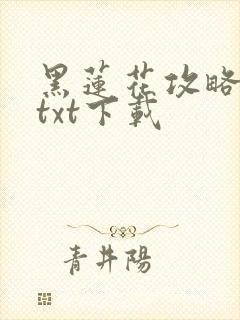 黑蓮花攻略
txt下載
青井陽